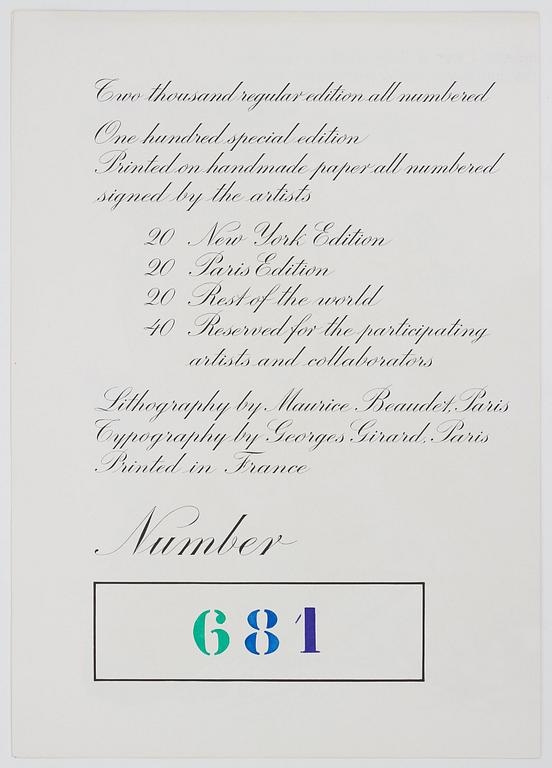 Two thousand regular edition all numbered
One hundred special edition
Printed on handmade paper all numbered
signed by the artists
20 New York Edition
20 Paris Edition
20 Rest of the world
40 Reserved for the participating
artists and collaborators
Lithography by Maurice Beaudet, Paris
Typography by Georges Girard, Paris
Printed in France
Number
681